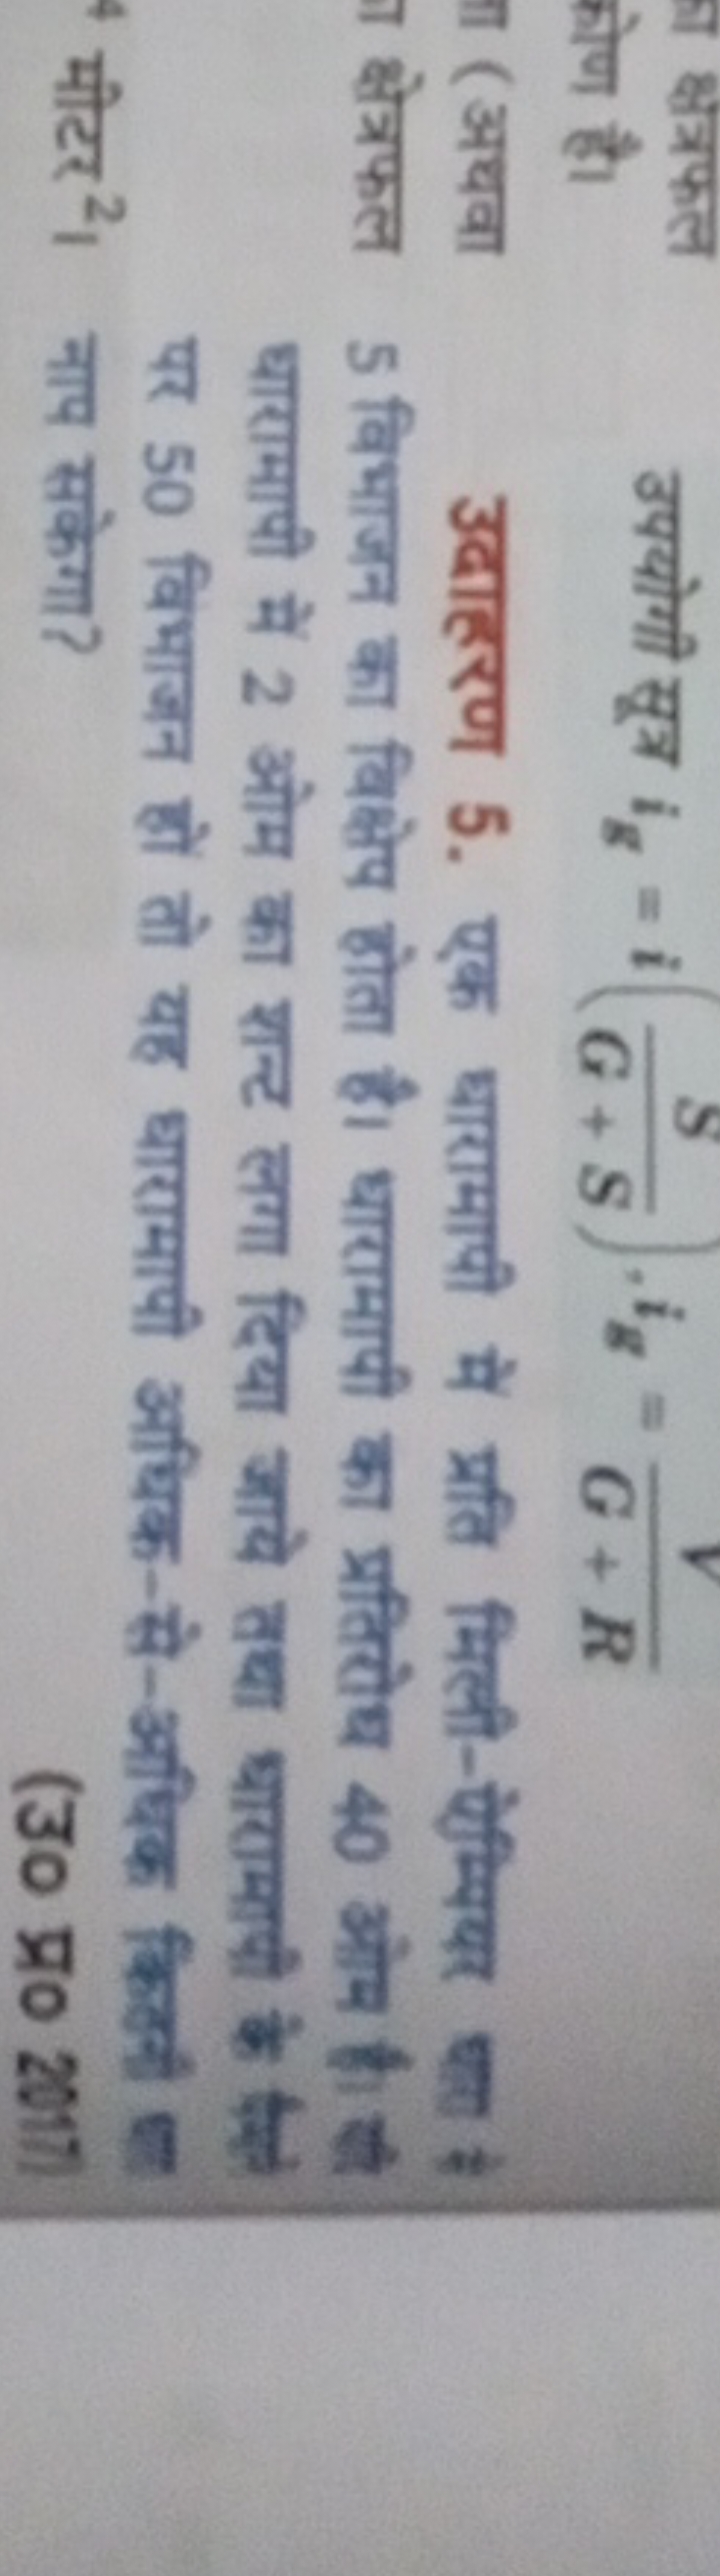 का क्षेत्रफल
कोण है।
ा (अथवा
ा क्षेत्रफल
4 मीटर²।
उपयोगी सूत्र i_g = i (S / (G + S)), i_g = V / (G + R)
उदाहरण 5. एक धारामापी में प्रति मिली-ऐम्पियर धारा से
5 विभाजन का विक्षेप होता है। धारामापी का प्रतिरोध 40 ओम है। यदि
धारामापी में 2 ओम का शन्ट लगा दिया जाये तथा धारामापी के पैमाने
पर 50 विभाजन हों तो यह धारामापी अधिक-से-अधिक कितनी धारा
नाप सकेगा?
(उ० प्र० 2017)